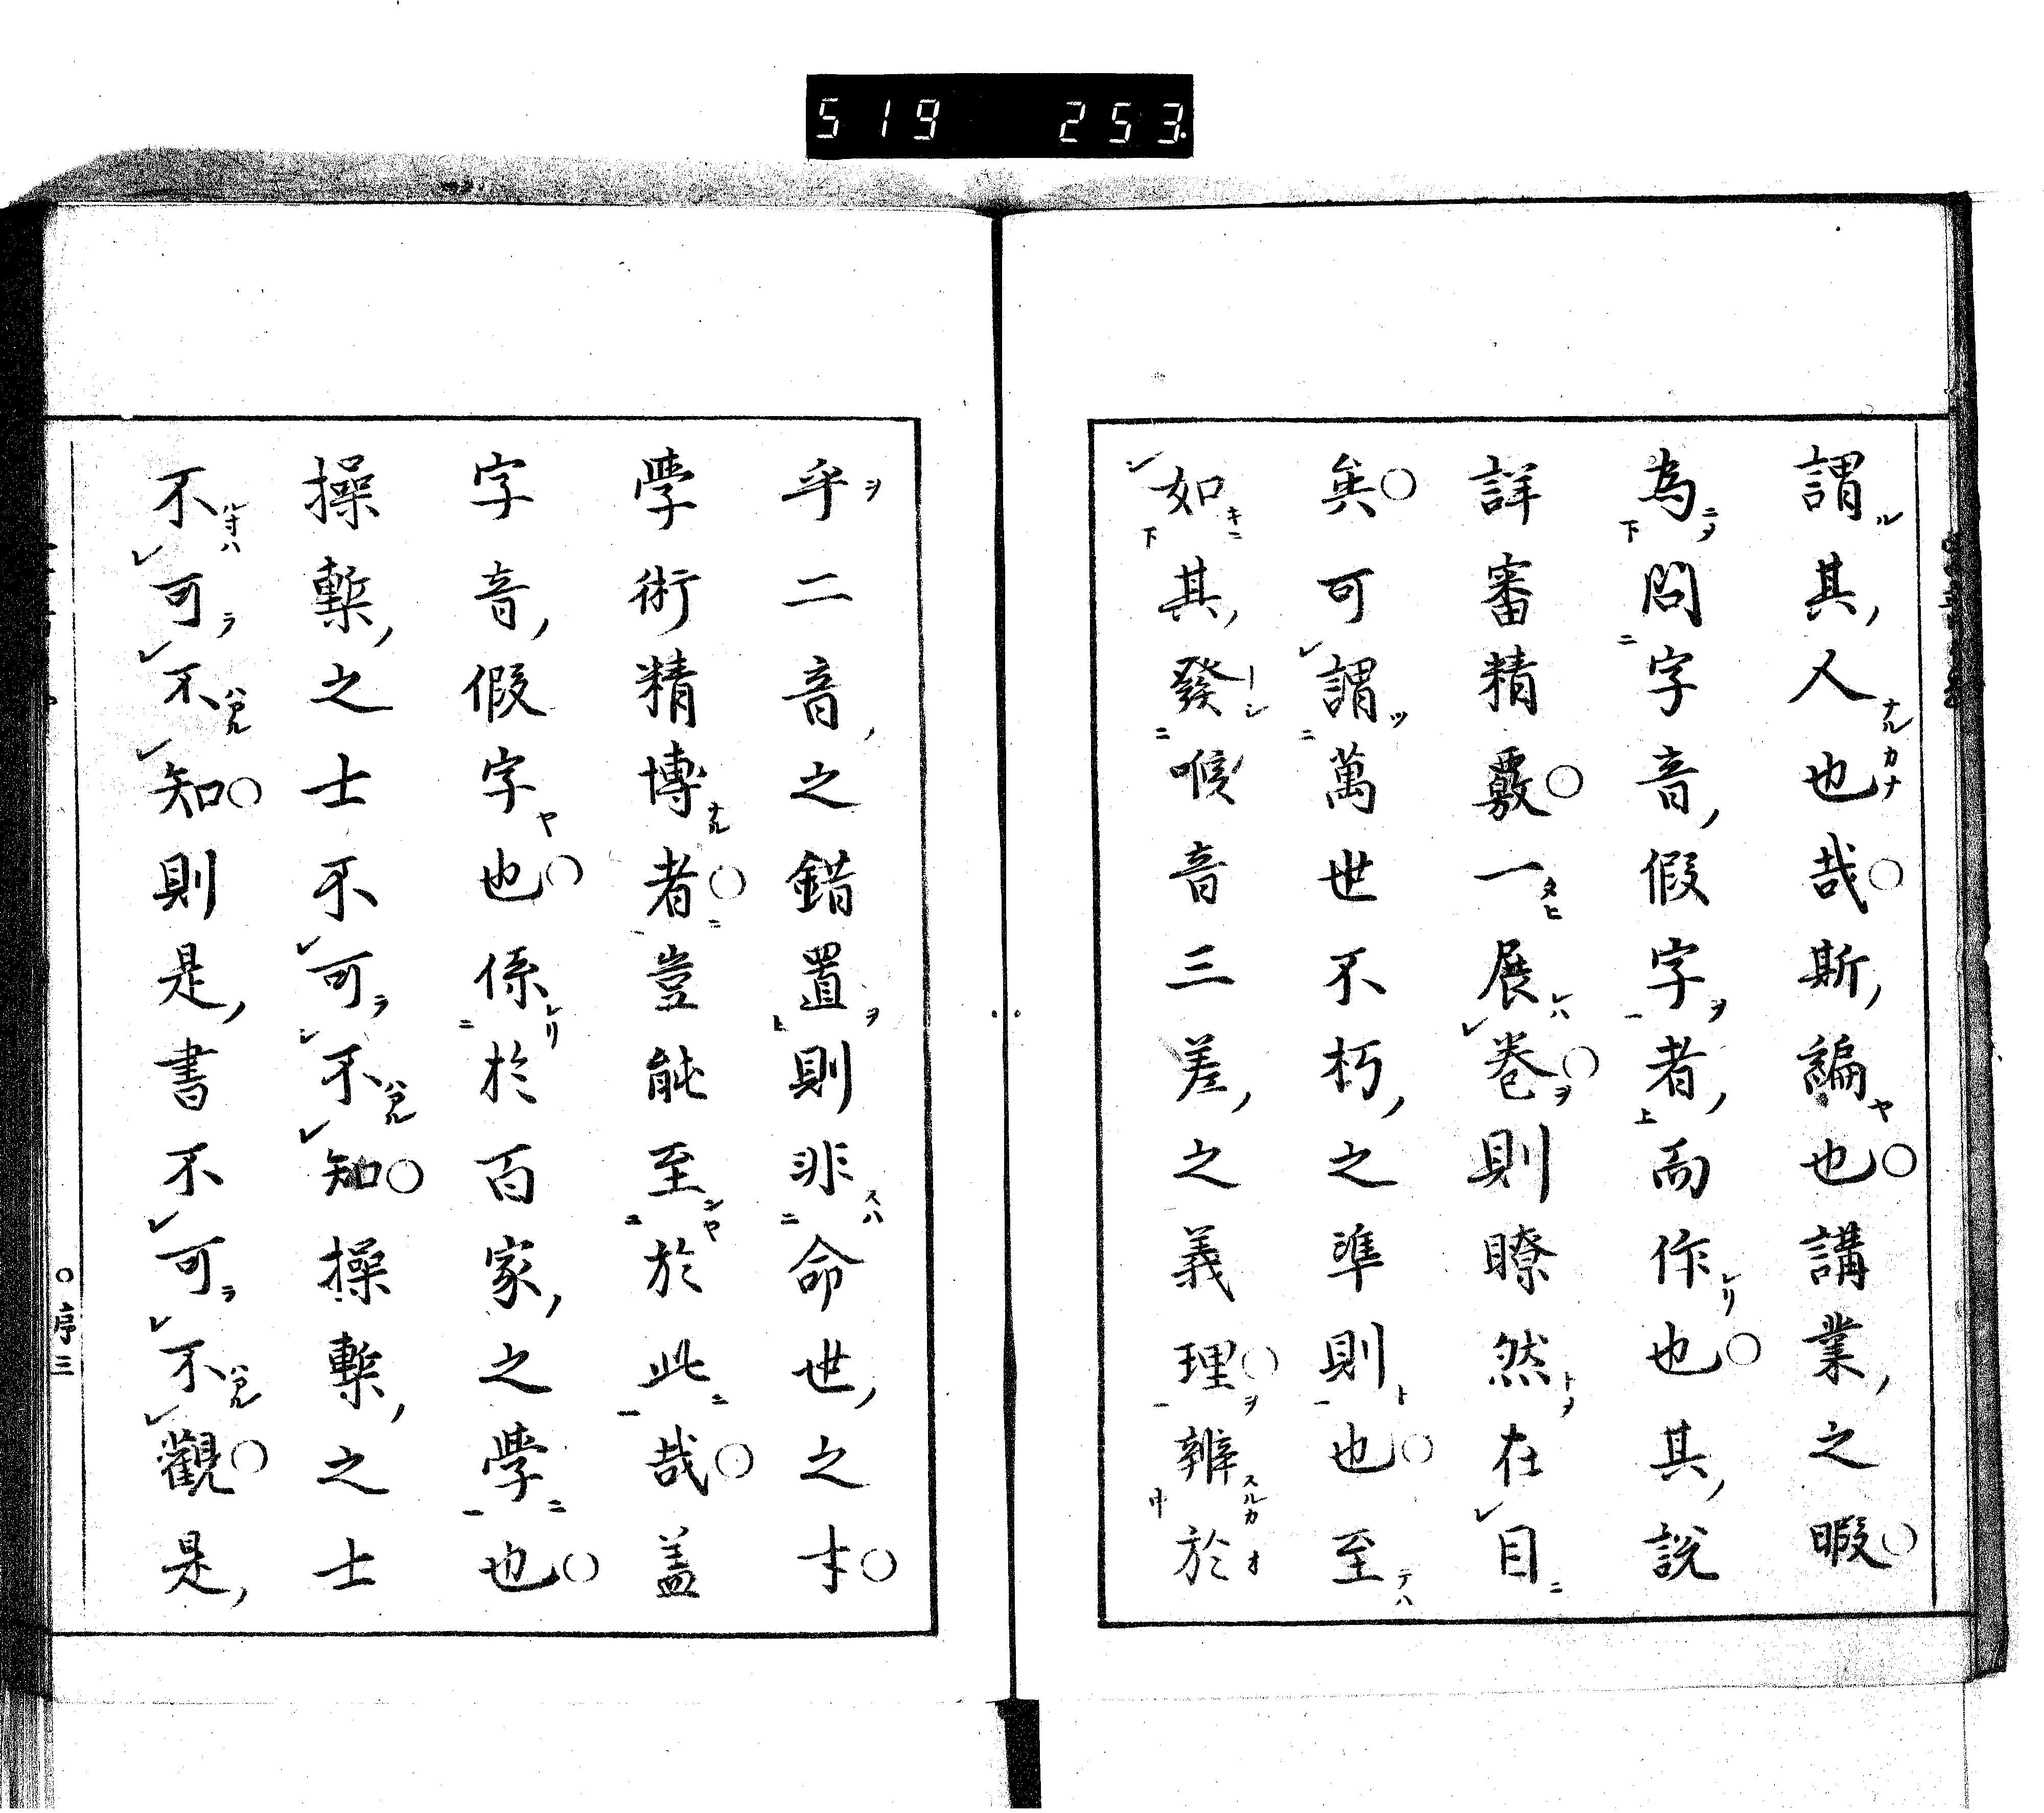 519 253
謂其人也哉斯編也講業之暇
為問字音假字者而作也其說
詳審精覈一展巻則瞭然在目
矣可謂萬世不朽之準則也至
如其發喉音三差之義理辨於
乎二音之錯置則非命世之才
學術精博者豈能至於此哉蓋
字音假字也係於百家之學也
操槧之士不可不知操槧之士
不可不知則是書不可不觀是
序三